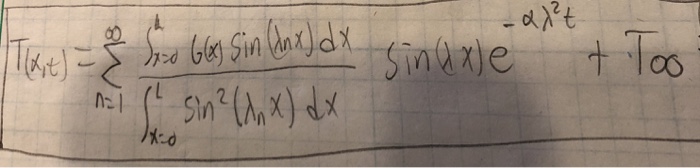 T(x,t) = ∞∑n=1 ∫x=0^L G(x) sin(λnx) dx / ∫x=0^L sin²(λnx) dx sin(λx) e^-αλ²t + T∞